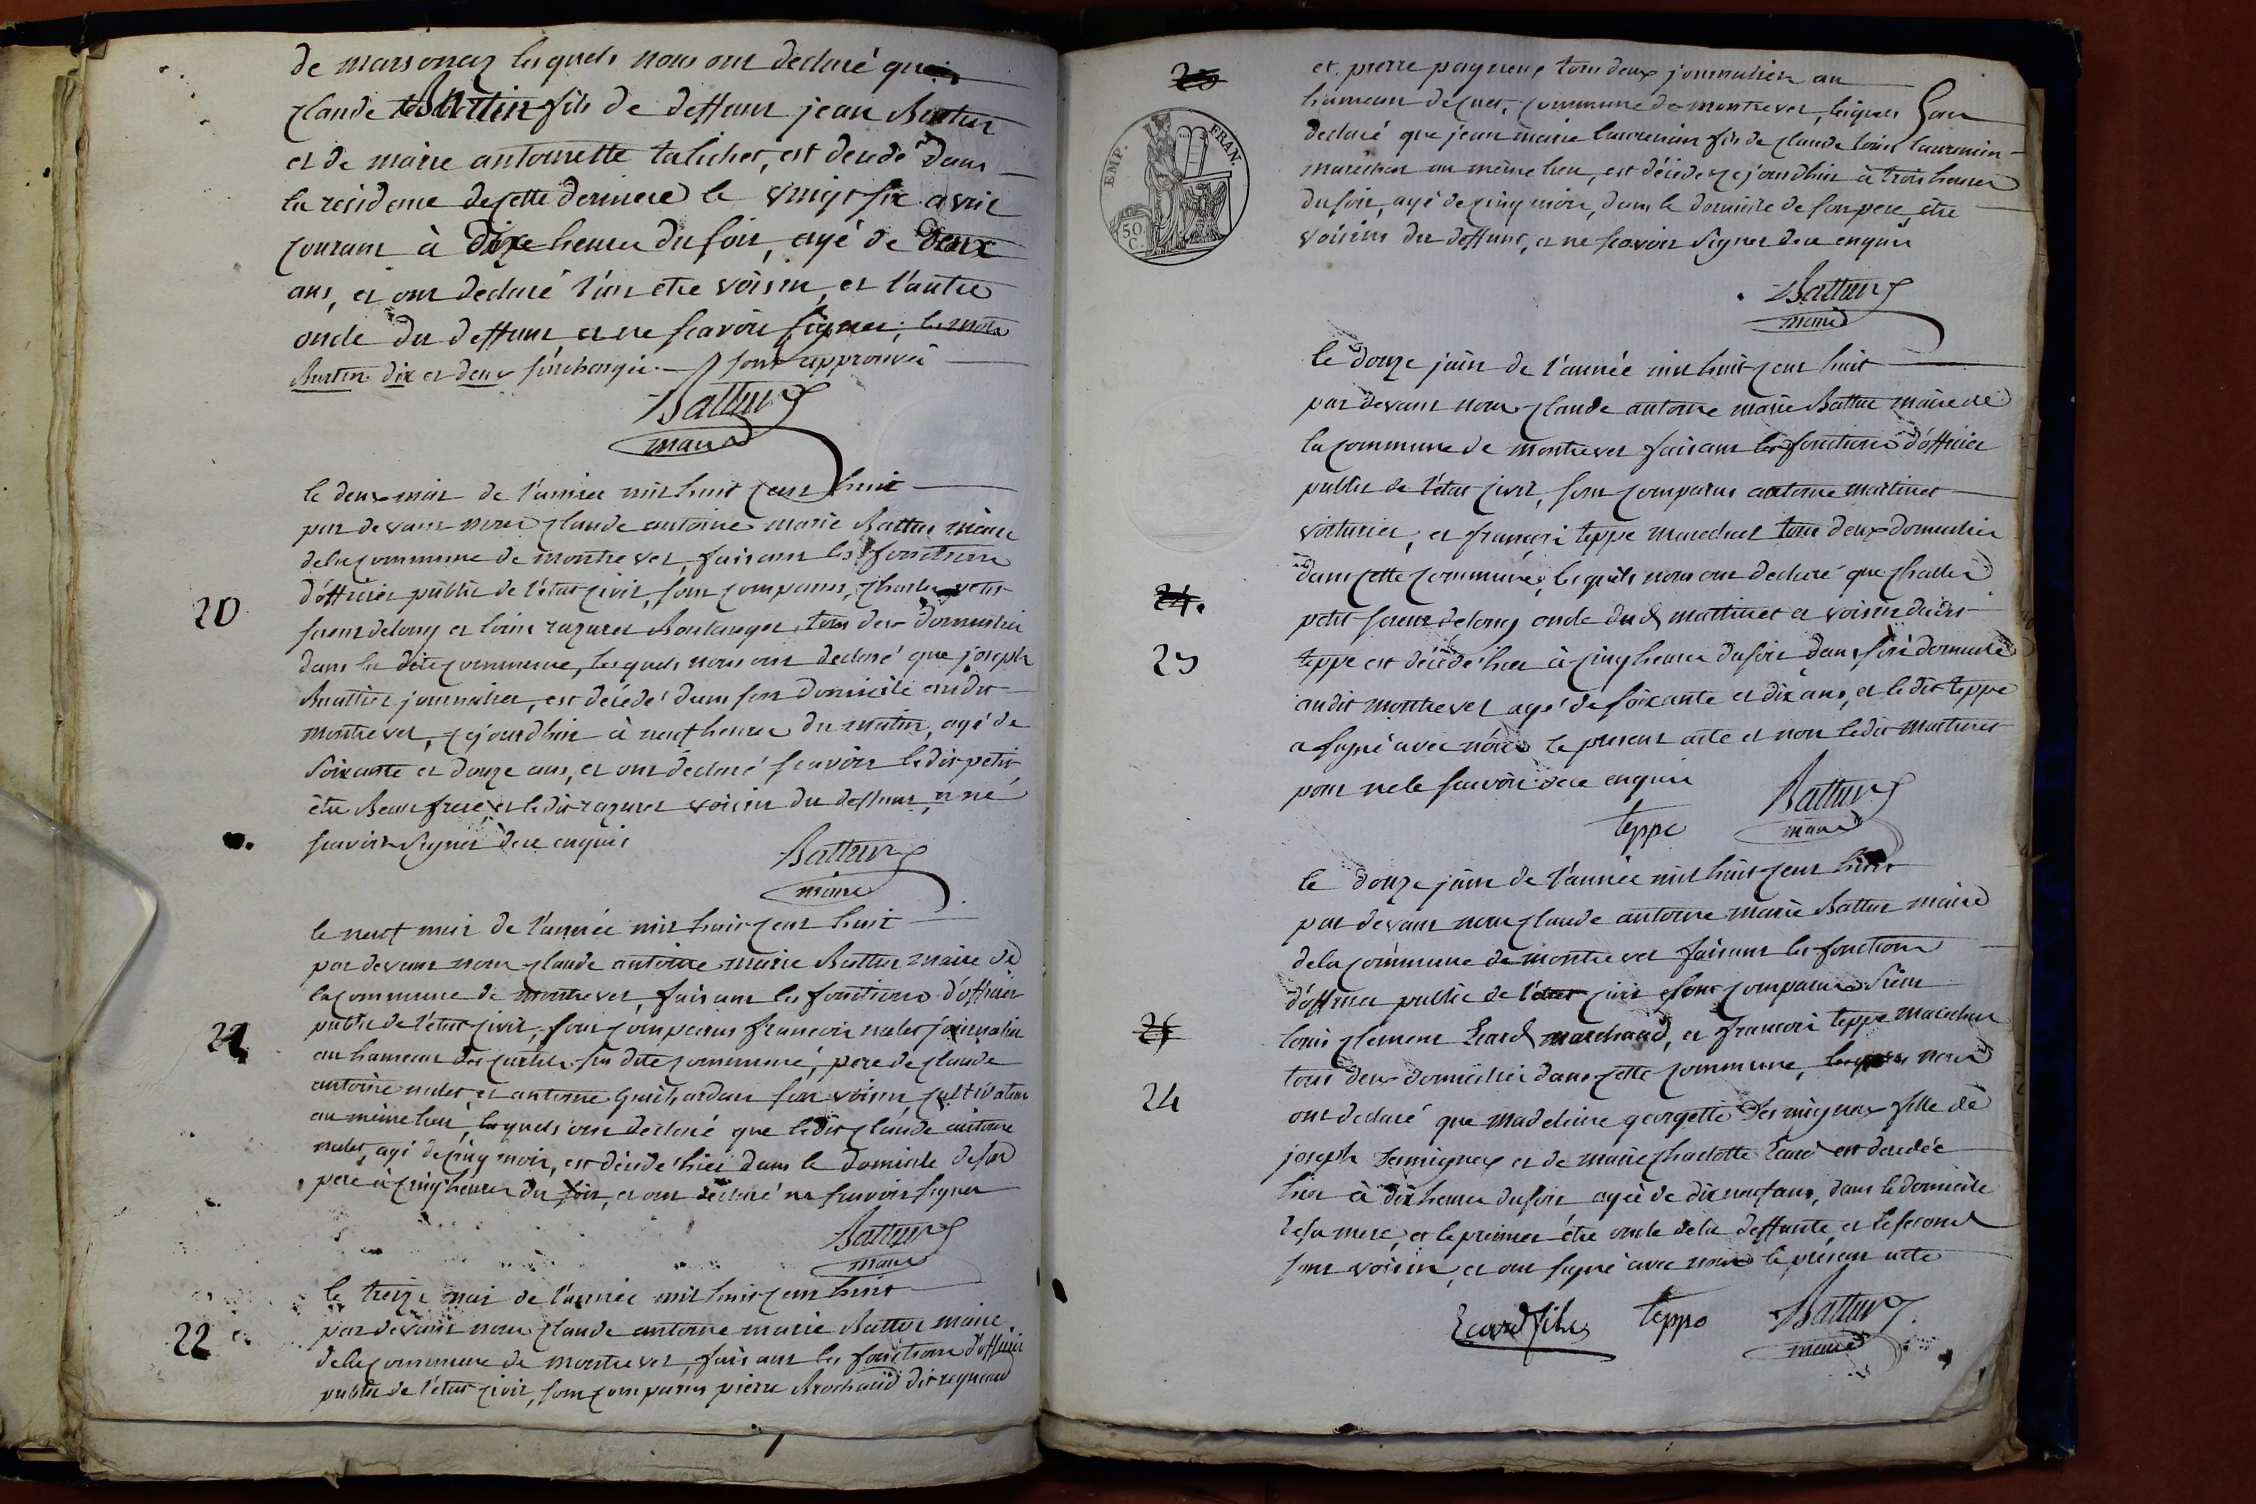 de marsonnaz lesquels nous ont declaré que
claude Burtin fils de deffunt jean Burtin
et de marie antoinette talichet, est decedé dans
la residence de cette derniere le vingt six avril
courant à dix heures du soir, agé de deux
ans, et ont declaré l'un etre voisin, et l'autre
oncle du deffunt et ne scavoir signer; les mots
Burtin dix et deux surchargés sont approuvés
Battur
maire
le deux mai de l'année mil huit cent huit
par devant nous claude antoine marie Battur maire
de la commune de montrevel, faisant les fonctions
d'officier public de l'état civil, sont comparus, charles petit
20
et louis razurel Boulanger, tous deux domiciliés
dans la dite commune, lesquels nous ont declaré que joseph
journalier, est décédé dans son domicile audit
montrevel, cejourdhui à neuf heures du matin, agé de
soixante et douze ans, et ont déclaré scavoir ledit petit
être Beau frere, et ledit razurel voisin du deffunt, et ne
scavoir signer de ce enquis
Battur
maire
le neuf mai de l'année mil huit cent huit
par devant nous claude antoine marie Battur maire de
la commune de montrevel, faisant les fonctions d'officier
public de l'état civil, sont comparus francois nalet journalier
21
au hameau des curtils sus dite commune, pere de claude
antoine nalet et antoine guichardan son voisin cultivateur
au même lieu, lesquels ont declaré que ledit claude antoine
nalet, agé de cinq mois, est décédé hier dans le domicile de son
pere à cinq heures du soir, et ont declaré ne scavoir signer
Battur
maire
le treize mai de l'année mil huit cent huit
22
par devant nous claude antoine marie Battur maire
de la commune de montrevel, faisant les fonctions d'officier
public de l'état civil, sont comparus pierre Brochaud dit
et pierre tous deux journaliers au
hameau de cuet, commune de montrevel, lesquels ont
EMP. FRAN.
50 C.
declaré que jean marie laurencin fils de claude louis laurencin
marechal au même lieu, est décédé cejourdhui à trois heures
du soir, agé de cinq mois, dans le domicile de son pere, etre
voisins du deffunt, et ne scavoir signer de ce enquis
Battur
maire
le douze juin de l'année mil huit cent huit
par devant nous claude antoine marie Battur maire de
la commune de montrevel faisant les fonctions d'officier
public de l'état civil, sont comparus antoine martinet
voiturier, et francois teppe marechal tous deux domiciliés
dans cette commune, lesquels nous ont declaré que charles
24.
petit oncle dud martinet et voisin dudit
23
teppe est décédé hier à cinq heures du soir dans son domicile
audit montrevel agé de soixante et dix ans, et le dit teppe
a signé avec nous le present acte et non ledit martinet
pour ne le scavoir de ce enquis
teppe Battur
maire
le douze juin de l'année mil huit cent huit
par devant nous claude antoine marie Battur maire
de la commune de montrevel faisant les fonctions
d'officier public de l'état civil sont comparus Sieur
25
louis clement Ecard marchand, et francois teppe marechal
tous deux domiciliés dans cette commune, lesquels nous
24
ont declaré que madeleine georgette Desmignaux fille de
joseph Desmignaux et de marie charlotte Ecard est decedée
hier à dix heures du soir agée de dix neuf ans, dans le domicile
de sa mere, et le premier être oncle de la deffunte, et le second
son voisin, et ont signé avec nous le présent acte
Ecard fils teppe Battur
maire